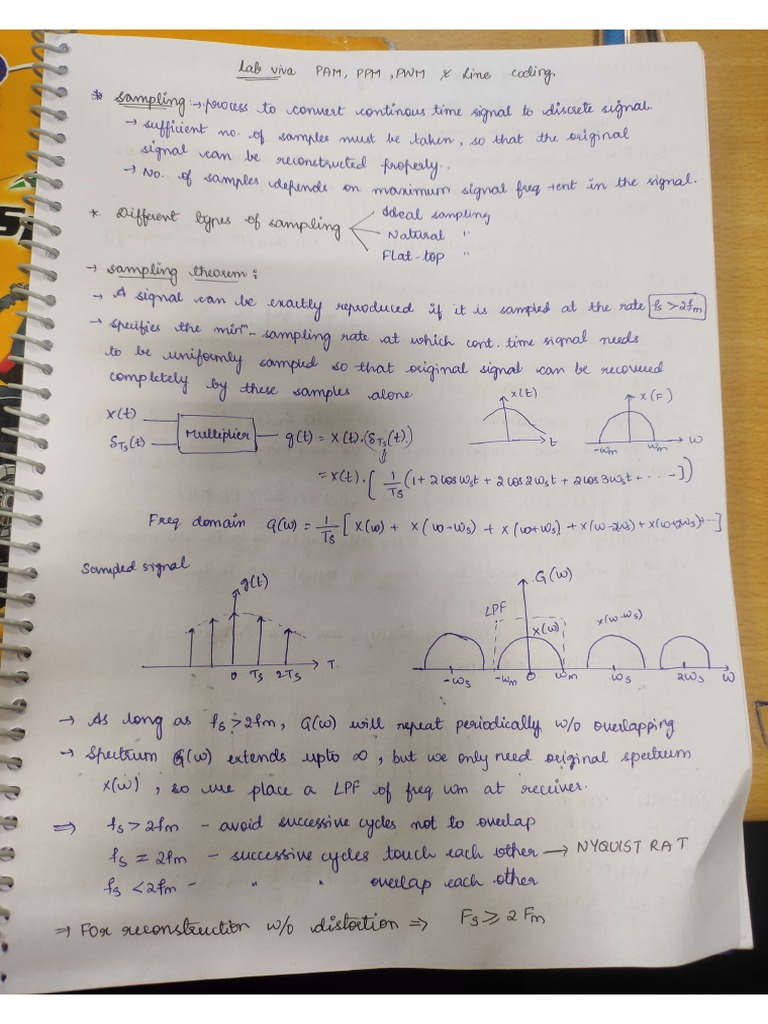 Lab viva PAM, PPM, PWM & Line coding.
* Sampling :→ process to convert continous time signal to discrete signal.
→ sufficient no. of samples must be taken, so that the original
signal can be reconstructed properly..
→ No. of samples depends on maximum signal freq →ent in the signal.
* Different types of sampling
Ideal sampling
Natural "
Flat-top "
→ Sampling theorem :
→ A signal can be exactly reproduced if it is sampled at the rate fs>2fm
→ specifies the minm - sampling rate at which cont. time signal needs
to be uniformly sampled so that original signal can be recovered
completely by these samples alone
x(t)
δTs(t)
Multiplier
g(t) = x(t).(δTs(t))
= x(t).[1/Ts (1+2cosωst + 2cos2ωst + 2cos3ωst + ----])
x(t)
t
x(F)
-ωm
ωm
ω
Freq domain G(ω) = 1/Ts [x(ω) + x(ω-ωs) + x(ω+ωs) + x(ω-2ωs) + x(ω+2ωs)+--]
Sampled signal
g(t)
0 Ts 2Ts
T.
G(ω)
LPF
x(ω)
x(ω-ωs)
-ωs -ωm 0 ωm ωs 2ωs ω
→ As long as fs>2fm, G(ω) will repeat periodically w/o overlapping
→ Spectrum G(ω) extends upto ∞, but we only need original spectrum
x(ω), so we place a LPF of freq ωm at receiver.
⇒ fs>2fm - avoid successive cycles not to overlap
fs = 2fm - successive cycles touch each other → NYQUIST RAT
fs <2fm - " " overlap each other
⇒ For reconstruction w/o distortion ⇒ Fs ≥ 2Fm